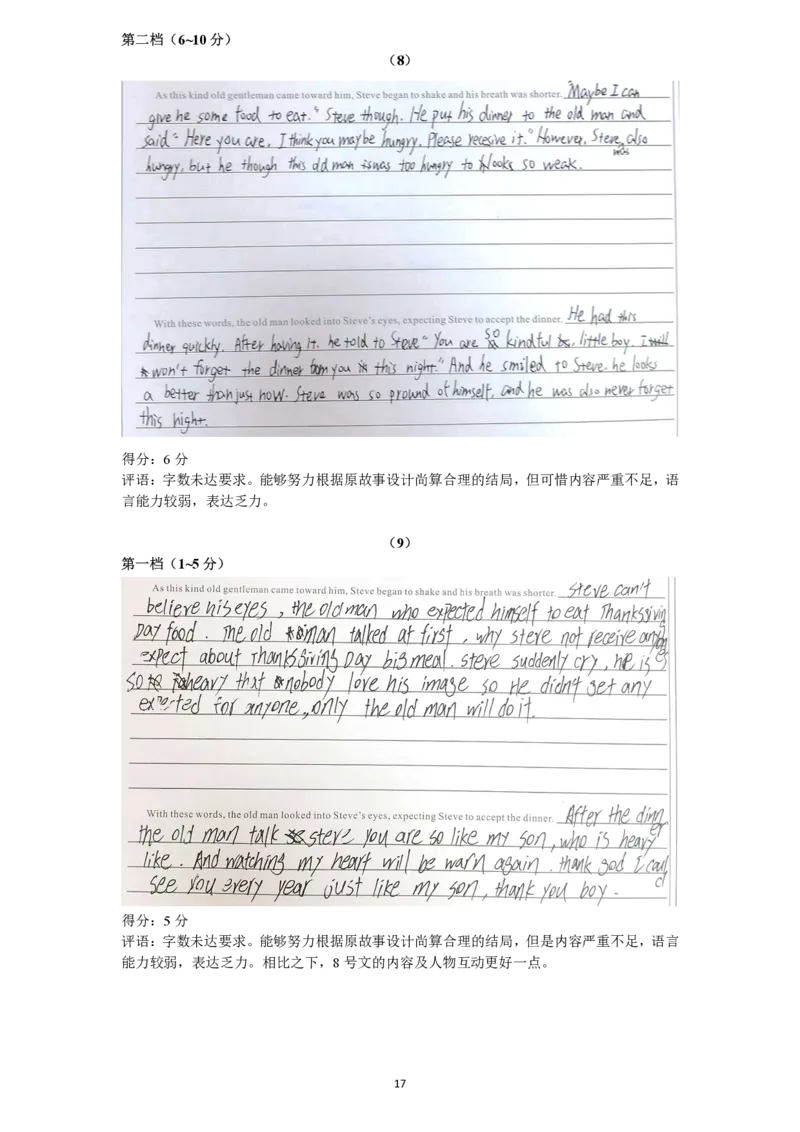 第二档（6~10 分）
（8）
As this kind old gentleman came toward him, Steve began to shake and his breath was shorter. "Maybe I can
give he some food to eat." Steve though. He put his dinner to the old man and
said "Here you are, I think you maybe hungry. Please recesive it." However, Steve was also
hungry, but he though this old man was too hungry to looks so weak.
With these words, the old man looked into Steve's eyes, expecting Steve to accept the dinner. He had this
dinner quickly. After having it. he told to Steve "You are so kindful, little boy. I
won't forget the dinner from you in this night." And he smiled to Steve. he looks
a better than just now. Steve was so pround of himself, and he was also never forget
this night.
得分：6 分
评语：字数未达要求。能够努力根据原故事设计尚算合理的结局，但可惜内容严重不足，语
言能力较弱，表达乏力。
（9）
第一档（1~5 分）
As this kind old gentleman came toward him, Steve began to shake and his breath was shorter. Steve can't
believe his eyes, the old man who expected himself to eat Thanksgiving
Day food. The old man talked at first, why steve not receive anyon
expect about Thanksgiving Day big meal. steve suddenly cry, he is
so heavy that nobody love his image so He didn't get any
for anyone, only the old man will do it.
With these words, the old man looked into Steve's eyes, expecting Steve to accept the dinner. After the dinner
the old man talk steve you are so like my son, who is heavy
like. And watching my heart will be warn again. thank god I could
see you every year just like my son, thank you boy.
得分：5 分
评语：字数未达要求。能够努力根据原故事设计尚算合理的结局，但是内容严重不足，语言
能力较弱，表达乏力。相比之下，8 号文的内容及人物互动更好一点。
17